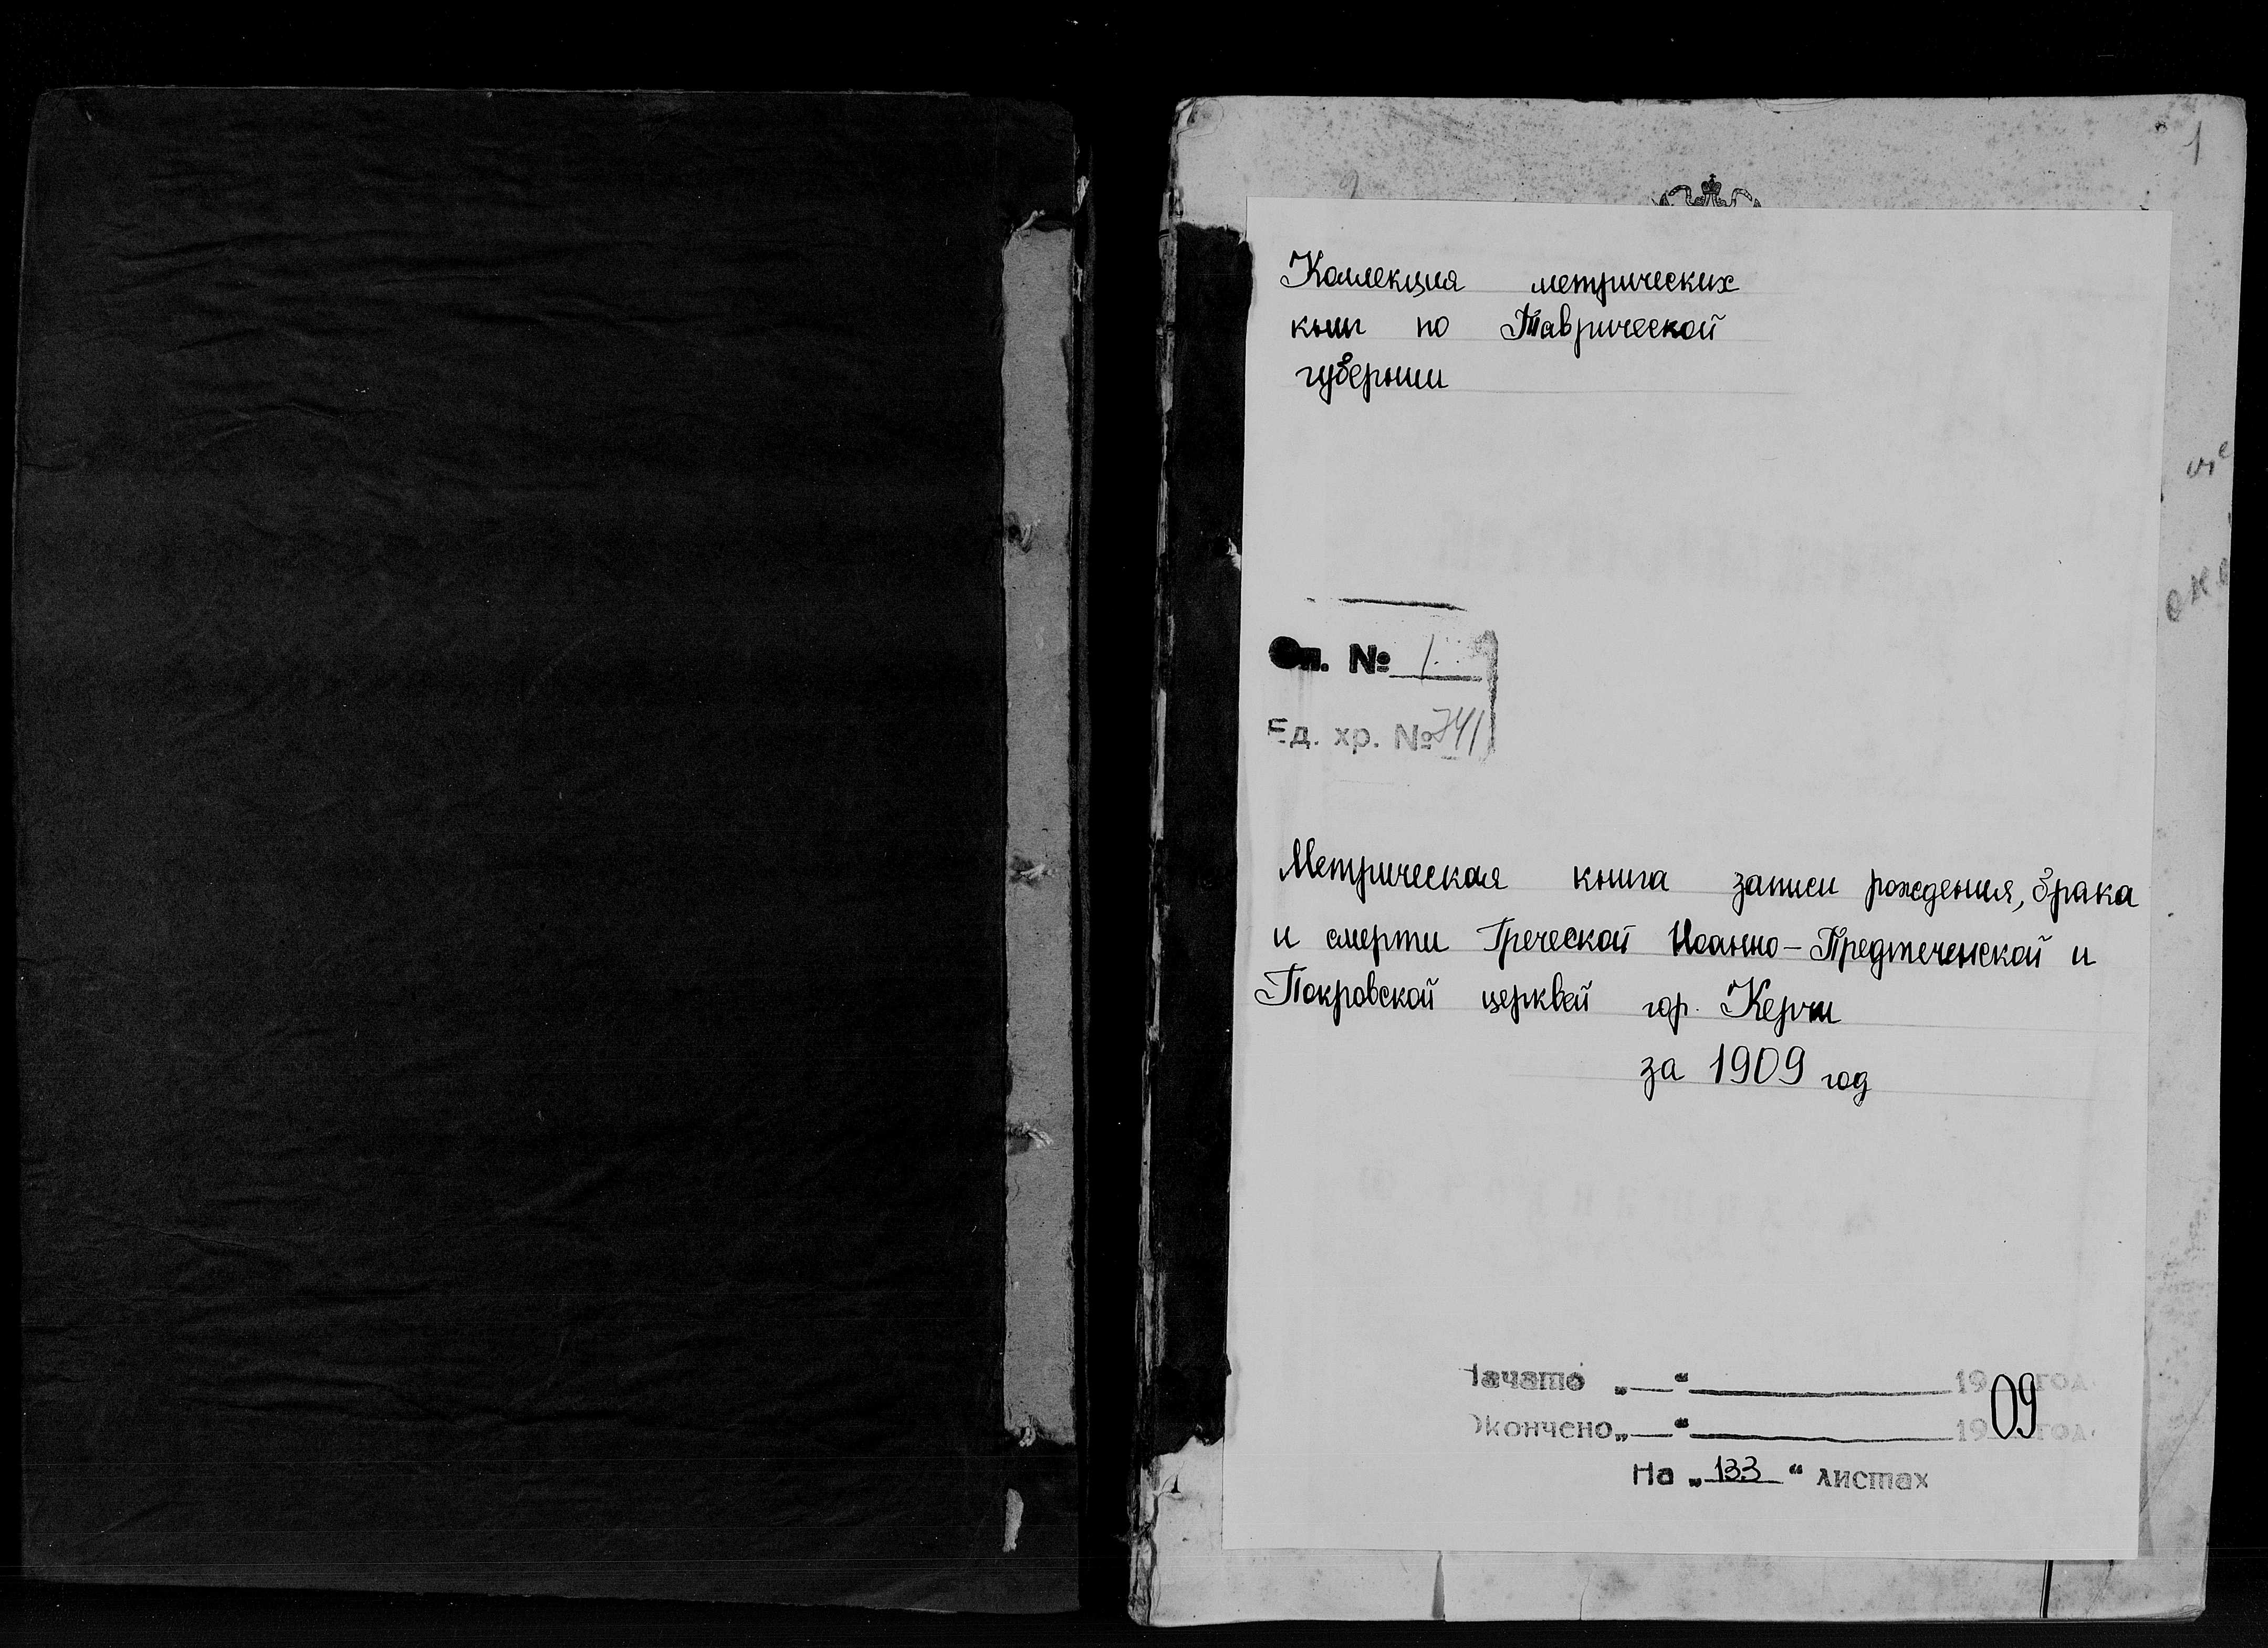 1
Коллекция метрических
книг по Таврической
губернии
Оп. № 1
Ед. хр. № 741
Метрическая книга записи рождения, брака
и смерти Греческой Иоанно-Предтеченской и
Покровской церквей гор. Керчи
за 1909 год
Начато „—“ 1909 год
Окончено „—“ 1909 год
На „133“ листах